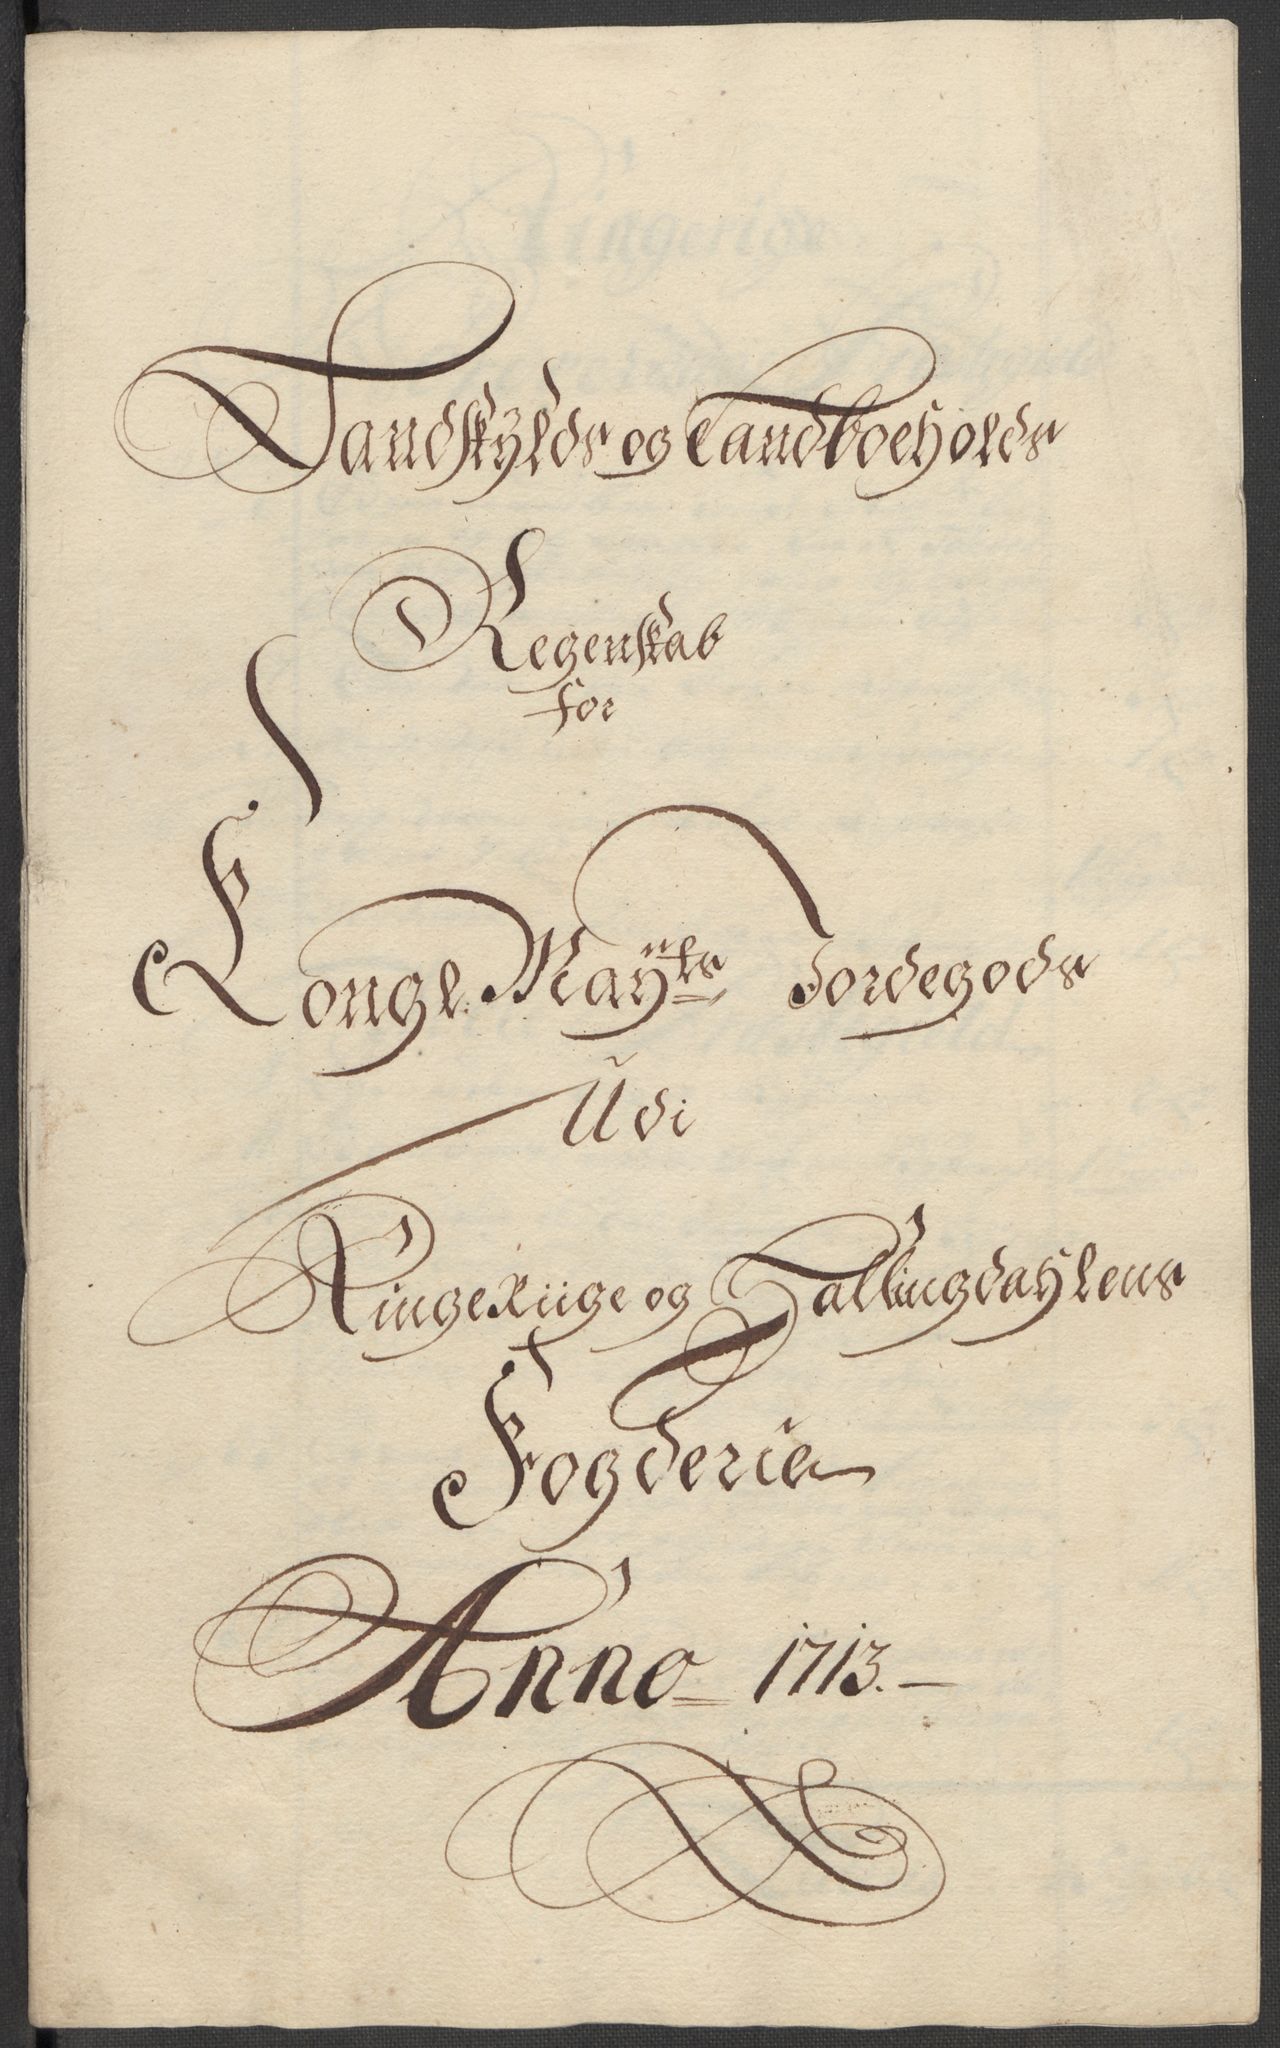 Landskylds og Landboeholds
Regenskab
for
Kongl. Mayts Jordegods
Udi
Ringeriige og Hallingdaylens
Fogderie
Anno 1713.